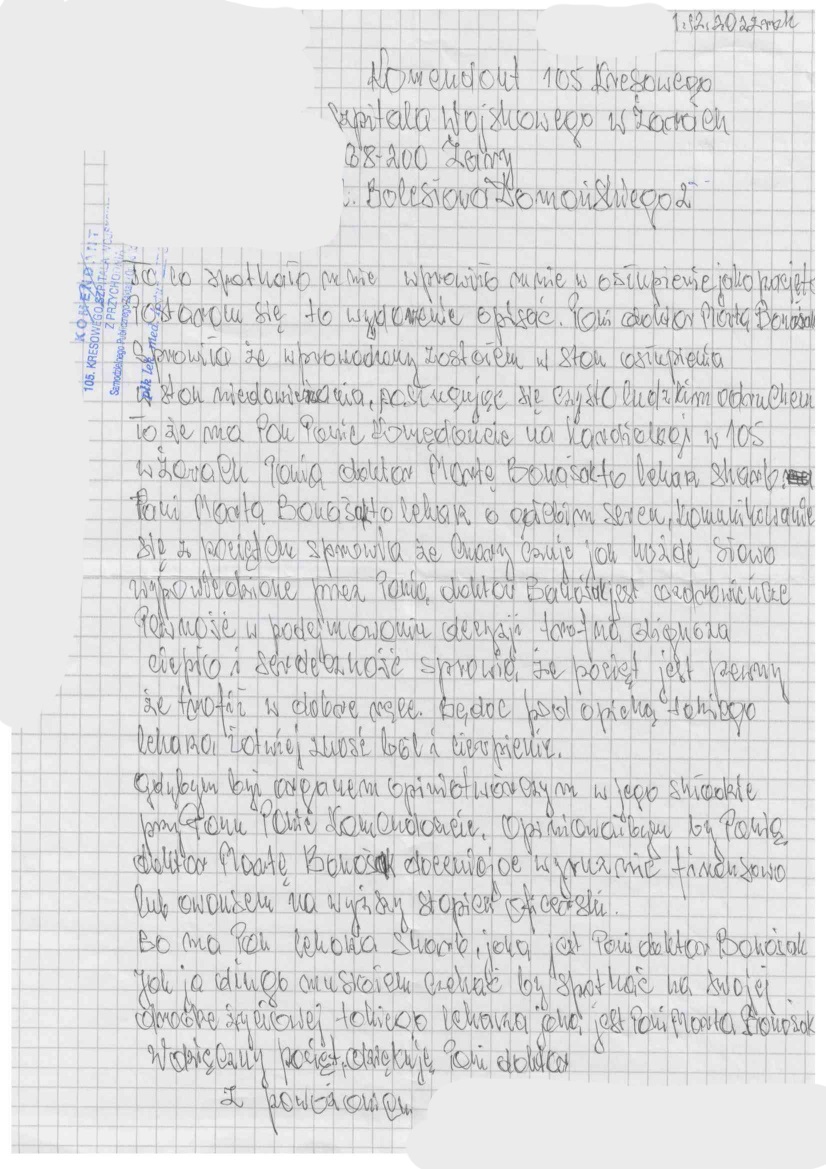 1.12.2022 rok
Komendant 105 Kresowego
Szpitala Wojskowego w Żarach
68-200 Żary
Bolesława Domańskiego 2
KOMENDANT
105. KRESOWEGO SZPITALA
Z PRZYCHODNIĄ
To co spotkało mnie wprawiło mnie w osłupienie jako pacjęta
Postaram się to wydarzenie opisać. Pani doktor Marta Banośak
Sprawiła że wprowadzony zostałem w stan osłupienia
w stan niedowierzania, posługując się czysto ludzkim odruchem
To że ma Pan Panie Komędancie na Kardialogi w 105
w Żarach Panią doktor Martę Banośak to lekarz skarb
Pani Marta Banośak to lekarz o gołębim sercu, komunikowanie
się z pacjętem sprawia że chory czuje jak każde słowo
wypowiedziane przez Panią doktor Banośak jest uzdrowieńcze
Pewność w podejmowaniu decyzji trafna diagnoza
ciepło i serdeczność sprawia, że pacjęt jest pewny
że trafił w dobre ręce. Będąc pod opieką takiego
lekarza, łatwiej zność ból i cierpienie.
Gdybym był organem opiniotwórczym w jego składzie
przy Panu Panie Komendancie. Opiniowałbym by Panią
doktor Martę Banośak doceniając wyrużnić finansowo
lub awansem na wyższy stopień oficerski.
Bo ma Pan lekarza skarb, jaką jest Pani doktor Banośak
Jak ja długo musiałem czekać by spotkać na swojej
drodze życiowej takiego lekarza jaką jest Pani Marta Banośak
Wdzięczny pacjęt, dziękuję Pani doktor
Z poważaniem